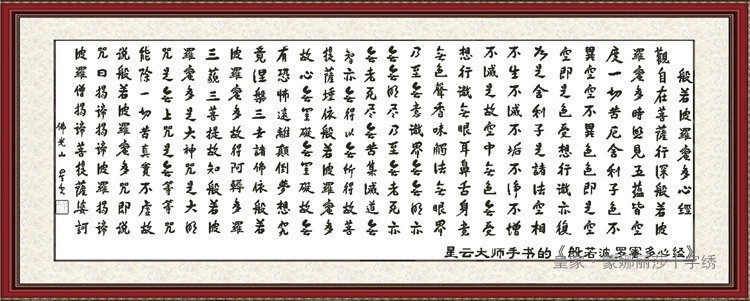 般若波羅蜜多心經
觀自在菩薩行深般若波
羅蜜多時照見五蘊皆空
度一切苦厄舍利子色不
異空空不異色色即是空
空即是色受想行識亦復
如是舍利子是諸法空相
不生不滅不垢不淨不增
不減是故空中無色無受
想行識無眼耳鼻舌身意
無色聲香味觸法無眼界
乃至無意識界無無明亦
無無明盡乃至無老死亦
無老死盡無苦集滅道無
智亦無得以無所得故菩
提薩埵依般若波羅蜜多
故心無罣礙無罣礙故無
有恐怖遠離顛倒夢想究
竟涅槃三世諸佛依般若
波羅蜜多故得阿耨多羅
三藐三菩提故知般若波
羅蜜多是大神咒是大明
咒是無上咒是無等等咒
能除一切苦真實不虛故
說般若波羅蜜多咒即說
咒曰揭諦揭諦波羅揭諦
波羅僧揭諦菩提薩婆訶
佛光山 星云
星云大师手书的《般若波罗蜜多心经》
皇家·蒙娜丽莎十字绣